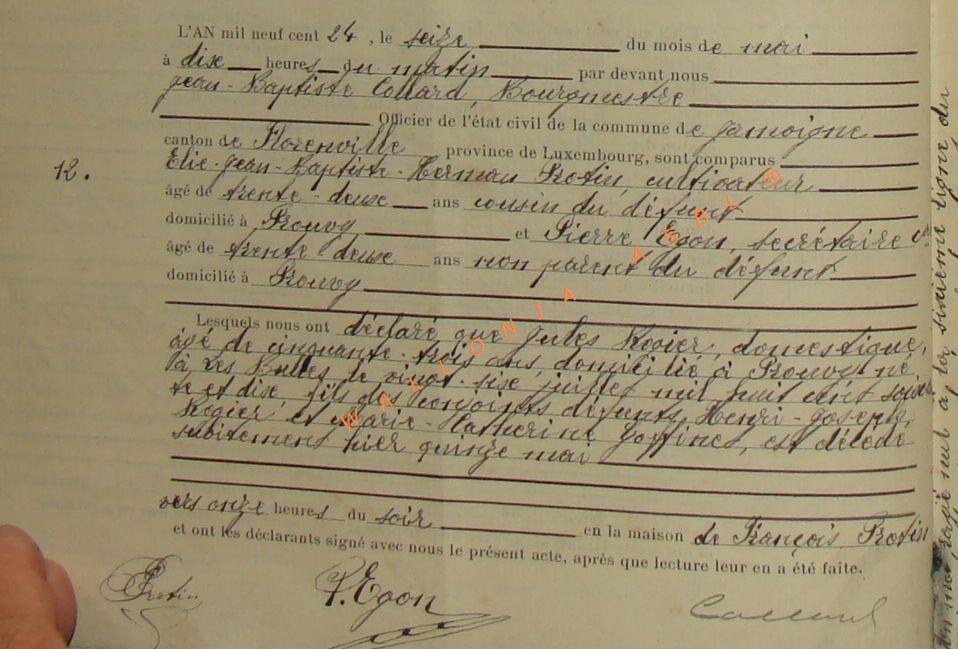 L'AN mil neuf cent 24, le seize du mois de mai
à dix heures du matin par devant nous
Jean-Baptiste Collard, Bourgmestre
Officier de l'état civil de la commune de Jamoigne
canton de Florenville province de Luxembourg, sont comparus
12. Elie-Jean-Baptiste-Herman Protin, cultivateur
âgé de trente-deux ans cousin du défunt
domicilié à Prouvy et Pierre Egon, secrétaire
âgé de trente-deux ans non parent du défunt
domicilié à Prouvy
Lesquels nous ont déclaré que Jules Rogier, domestique,
âgé de cinquante-trois ans, domicilié à Prouvy, né
à Les Bulles le vingt-six juillet mil huit cent soixan
te et dix, fils des conjoints défunts, Henri-Joseph
Rogier et Marie-Catherine Goffinet, est décédé
subitement hier quinze mai
vers onze heures du soir en la maison de François Protin
et ont les déclarants signé avec nous le présent acte, après que lecture leur en a été faite.
Protin P. Egon Collard
WALLONIA ASBL ®